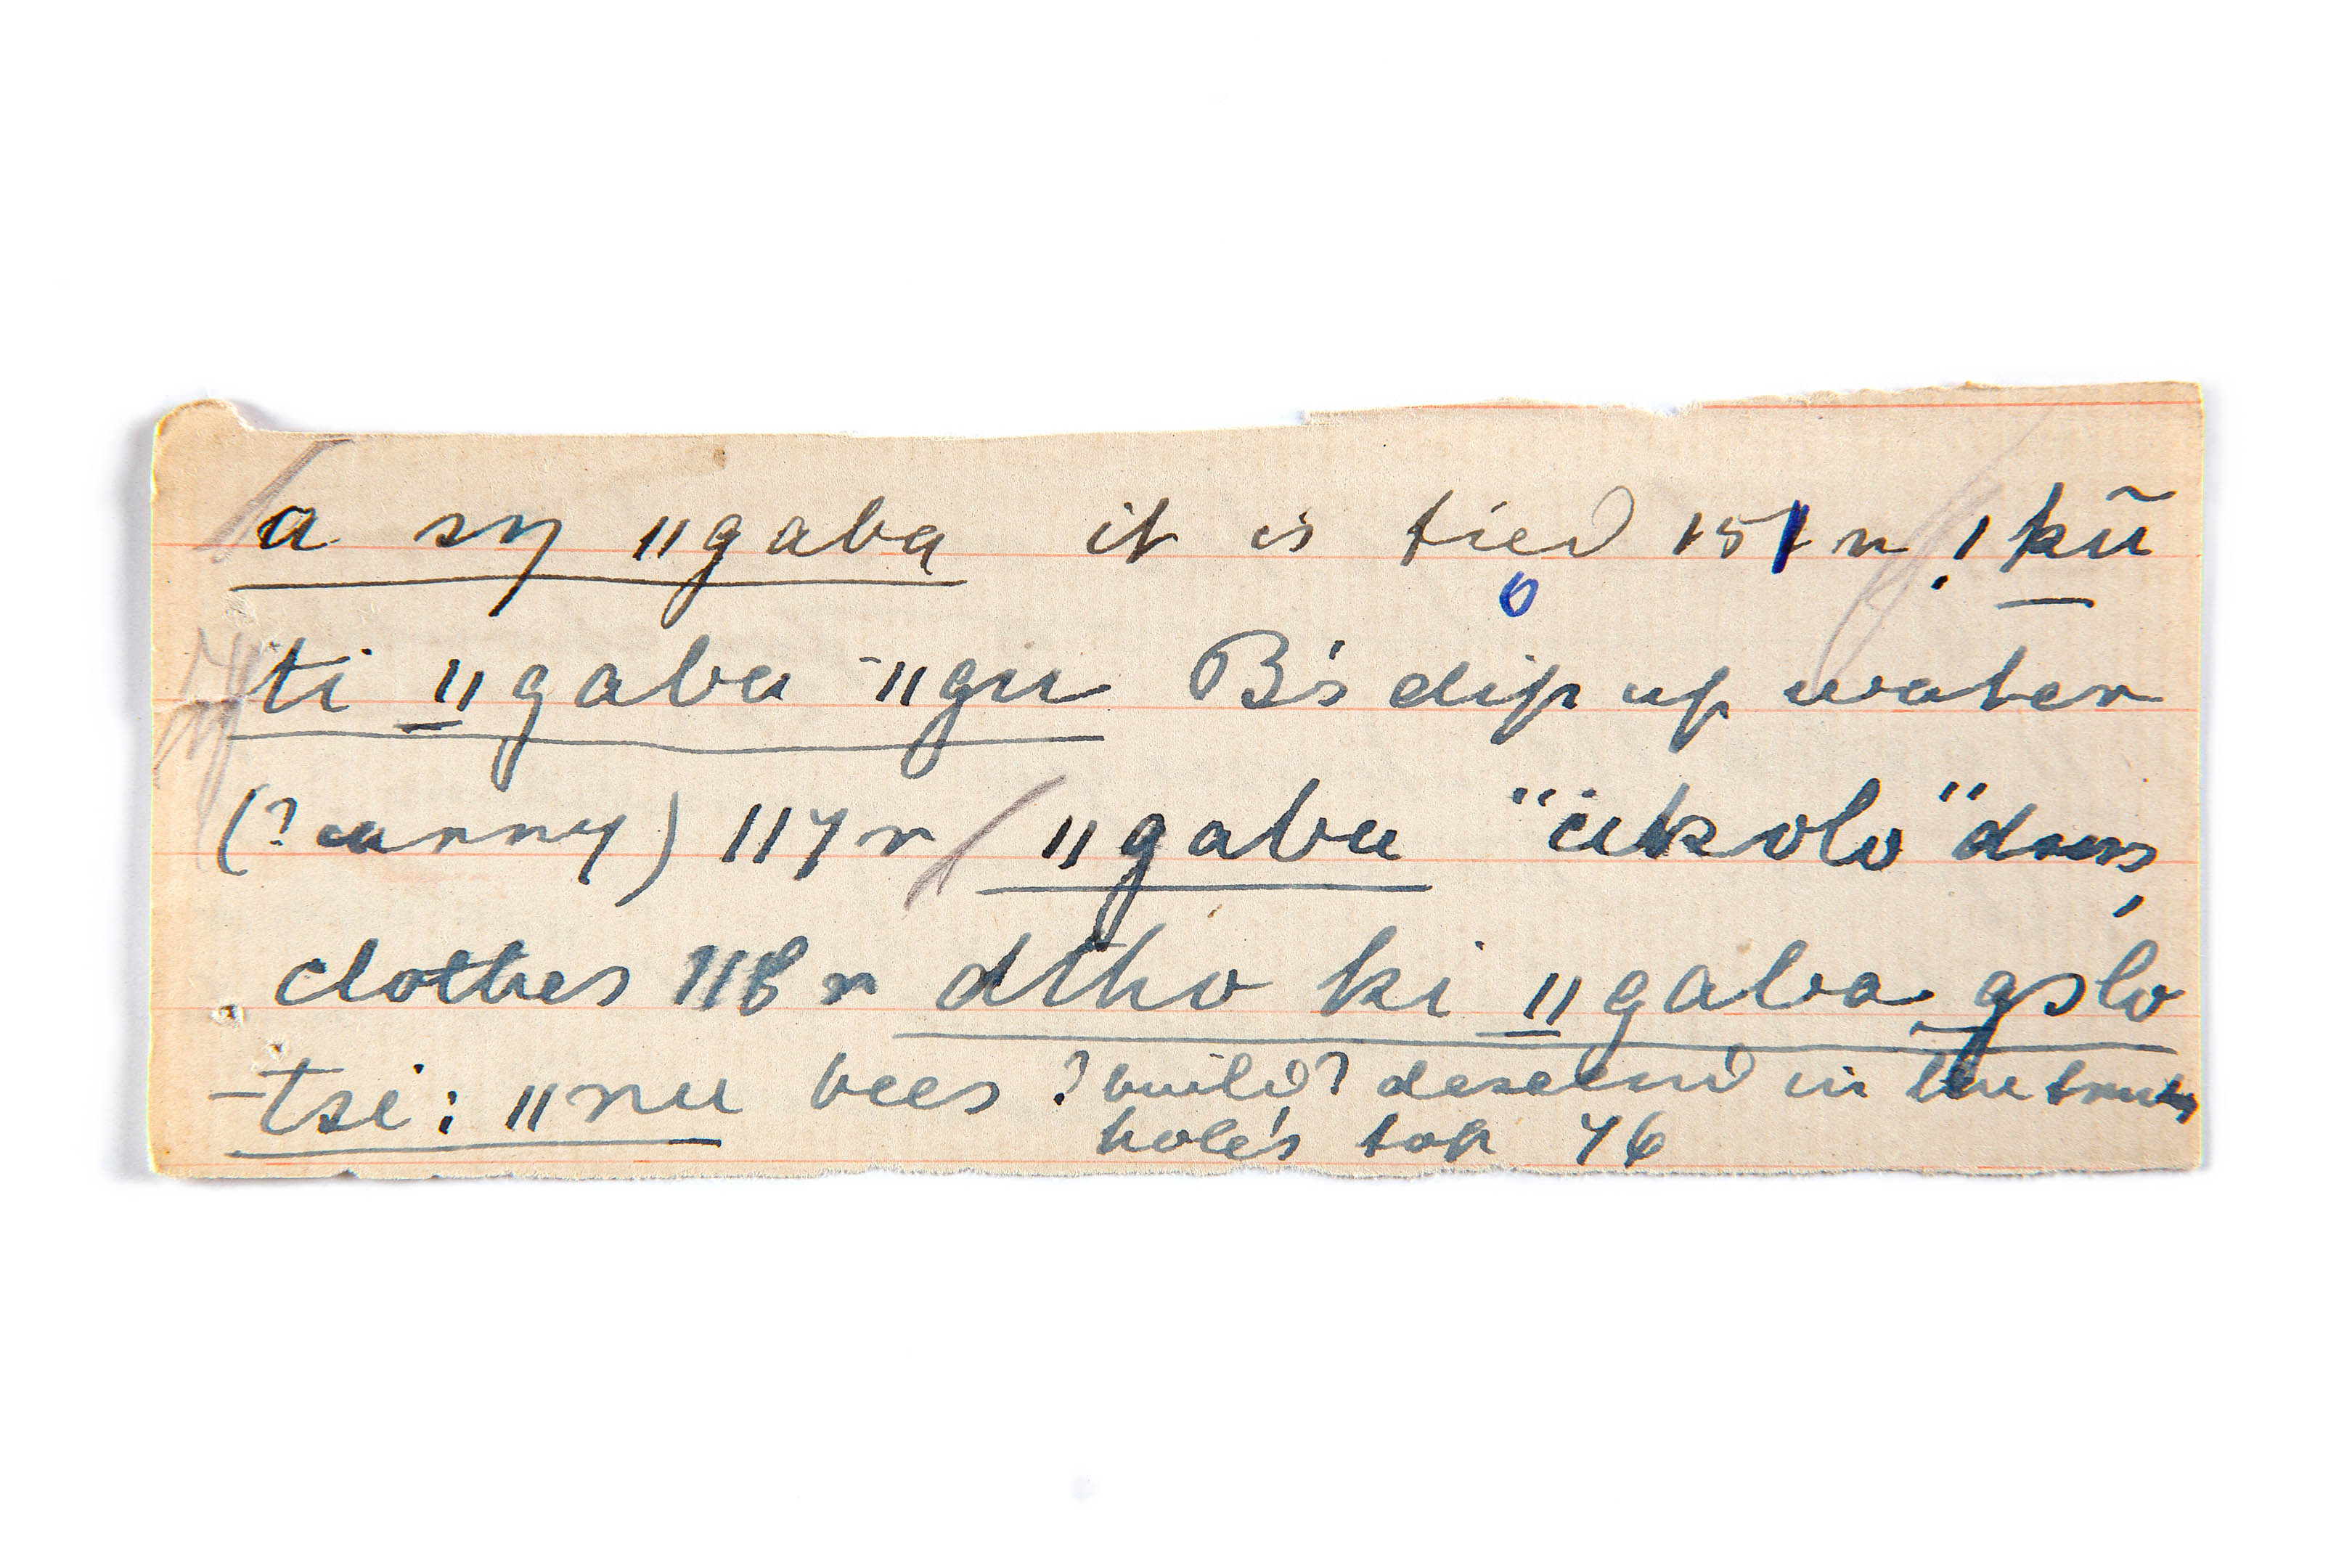 a sŋ ǁgaba it is tied 151 n, ǃkũ
ti ǁgaba ǁgu B's dip up water
(? carry) 117 r ǁgaba "ükolo" dress,
clothes 118 r dtho ki ǁgaba gɔlo
-tsi: ǁnu bees ? build? descend in the trunk's
hole's top 76